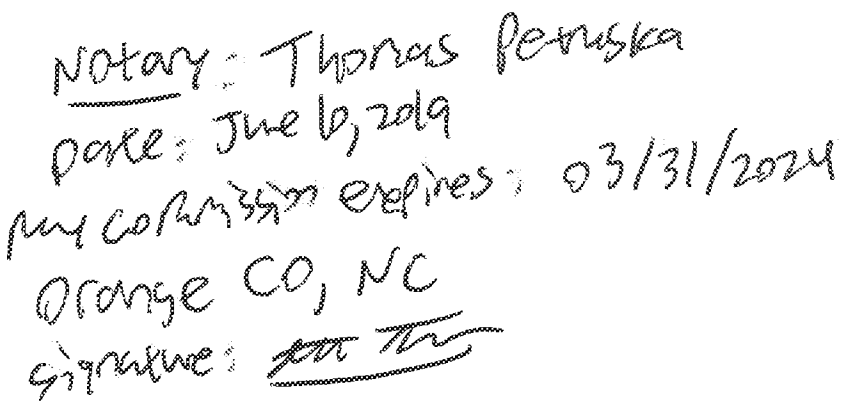 Notary: Thomas Petruska
Date: June 6, 2019
my commission expires: 03/31/2024
Orange CO, NC
signature: